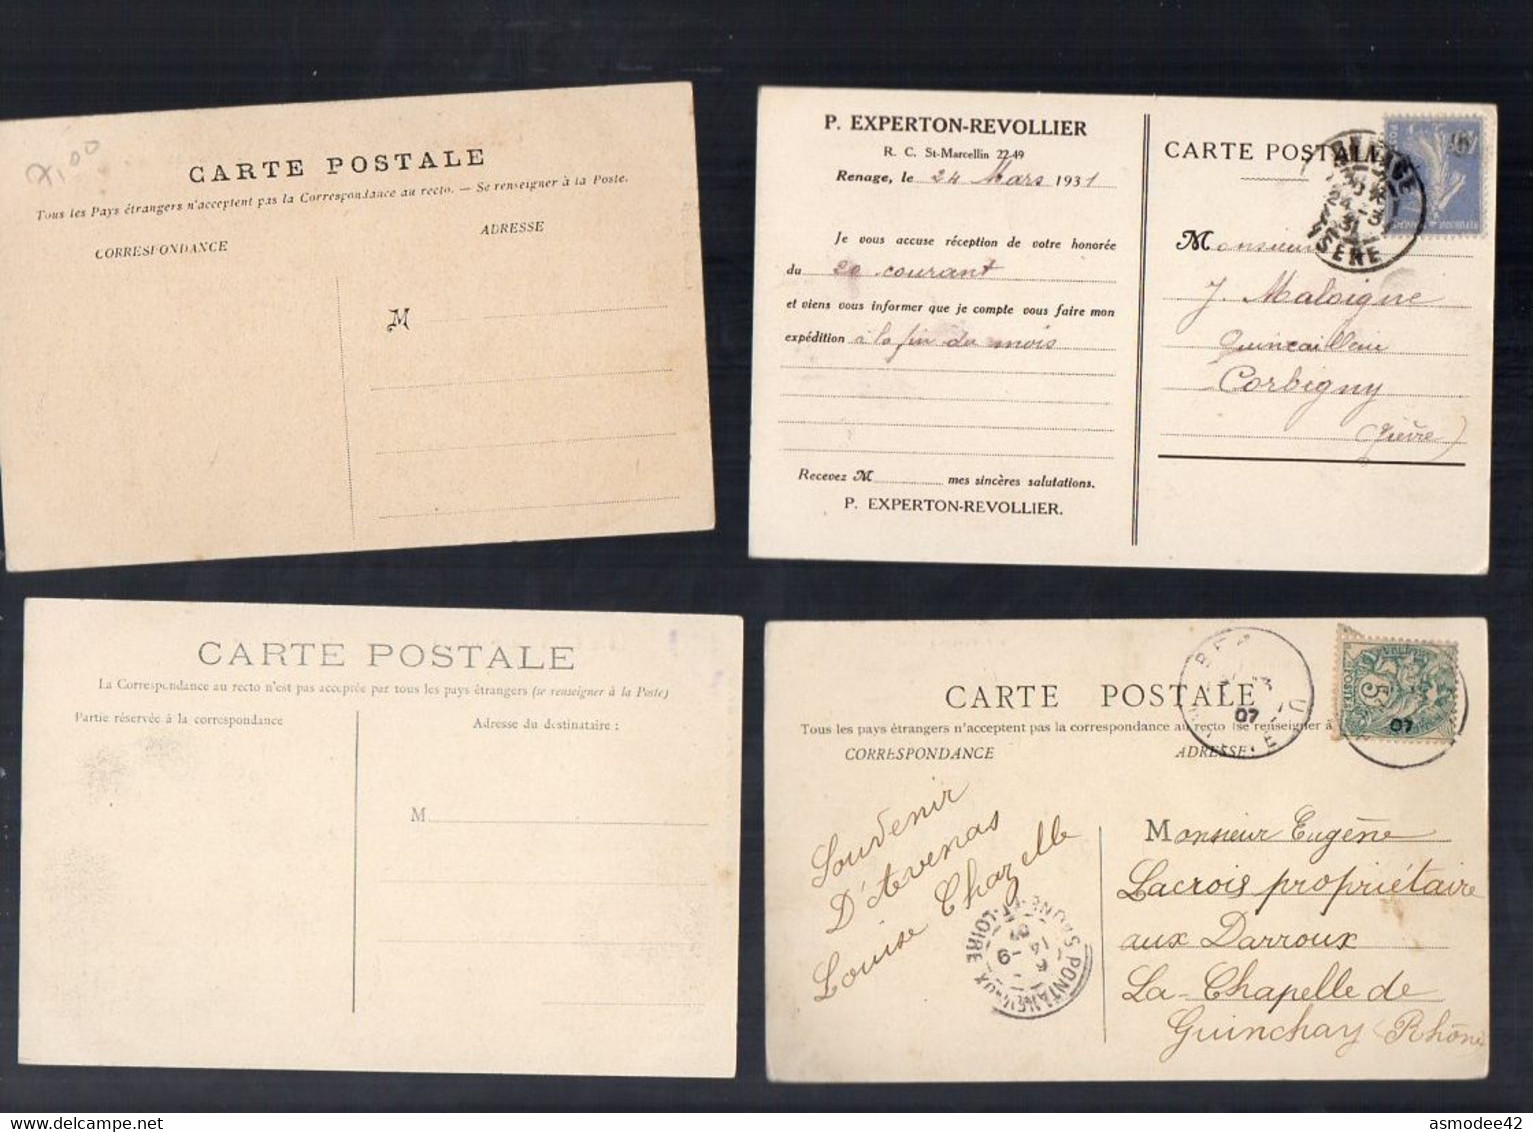 7,00
CARTE POSTALE
Tous les Pays étrangers n'acceptent pas la Correspondance au recto. — Se renseigner à la Poste.
CORRESPONDANCE
ADRESSE
M
P. EXPERTON-REVOLLIER
R. C. St-Marcellin 22-49
Renage, le 24 Mars 1931
Je vous accuse réception de votre honorée
du 20 courant
et viens vous informer que je compte vous faire mon
expédition à la fin du mois
Recevez M mes sincères salutations.
P. EXPERTON-REVOLLIER.
CARTE POSTALE
RENAGE
24-3
31
ISERE
Monsieur
J. Maloigne
Quincaillerie
Corbigny
(Nièvre)
CARTE POSTALE
La Correspondance au recto n'est pas acceptée par tous les pays étrangers (se renseigner à la Poste)
Partie réservée à la correspondance
Adresse du destinataire :
M
CARTE POSTALE
Tous les pays étrangers n'acceptent pas la correspondance au recto (se renseigner à
CORRESPONDANCE
ADRESSE
07
5
07
Souvenir
D'Avenas
Louise Chazelle
PONTANEVAUX
SAONE-ET-LOIRE
Monsieur Eugène
Lacrois propriétaire
aux Darroux
La-Chapelle de
Guinchay (Rhône
asmodee42